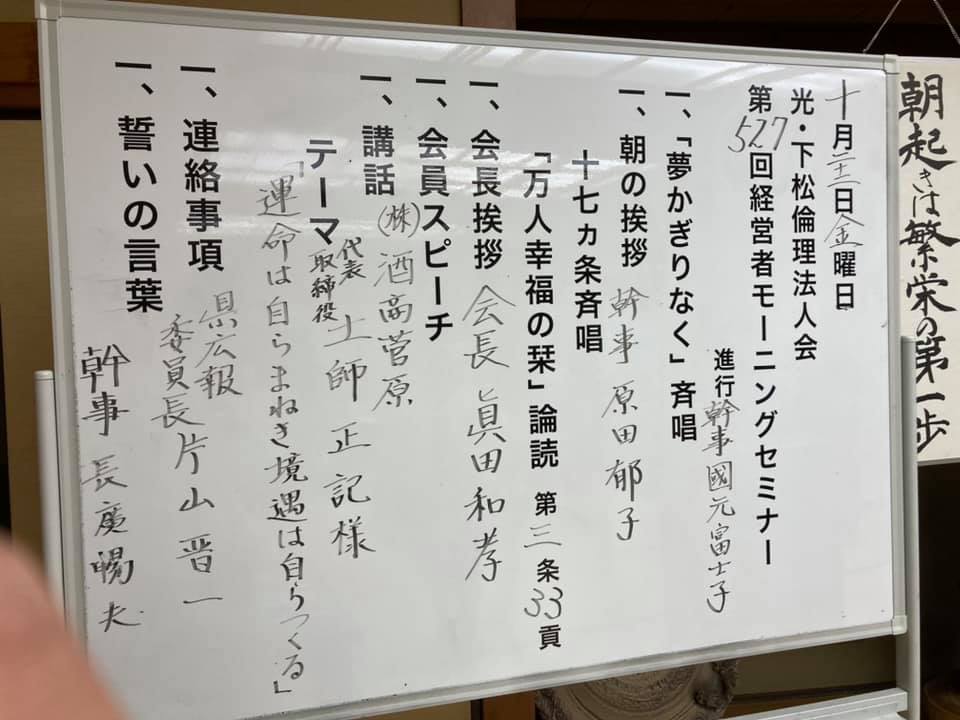 朝起きは繁栄の第一歩
十月二十一日金曜日
光・下松倫理法人会
第527回経営者モーニングセミナー
進行幹事國元富士子
一、「夢かぎりなく」斉唱
一、朝の挨拶 幹事 原田郁子
十七ヵ条斉唱
「万人幸福の栞」論読 第三条33貢
一、会長挨拶 会長 眞田和孝
一、会員スピーチ
一、講話 (株)酒高菅原
代表取締役 土師正記様
テーマ
「運命は自らまねき境遇は自らつくる」
一、連絡事項 県広報
委員長片山晋一
一、誓いの言葉
幹事 長廣暢夫